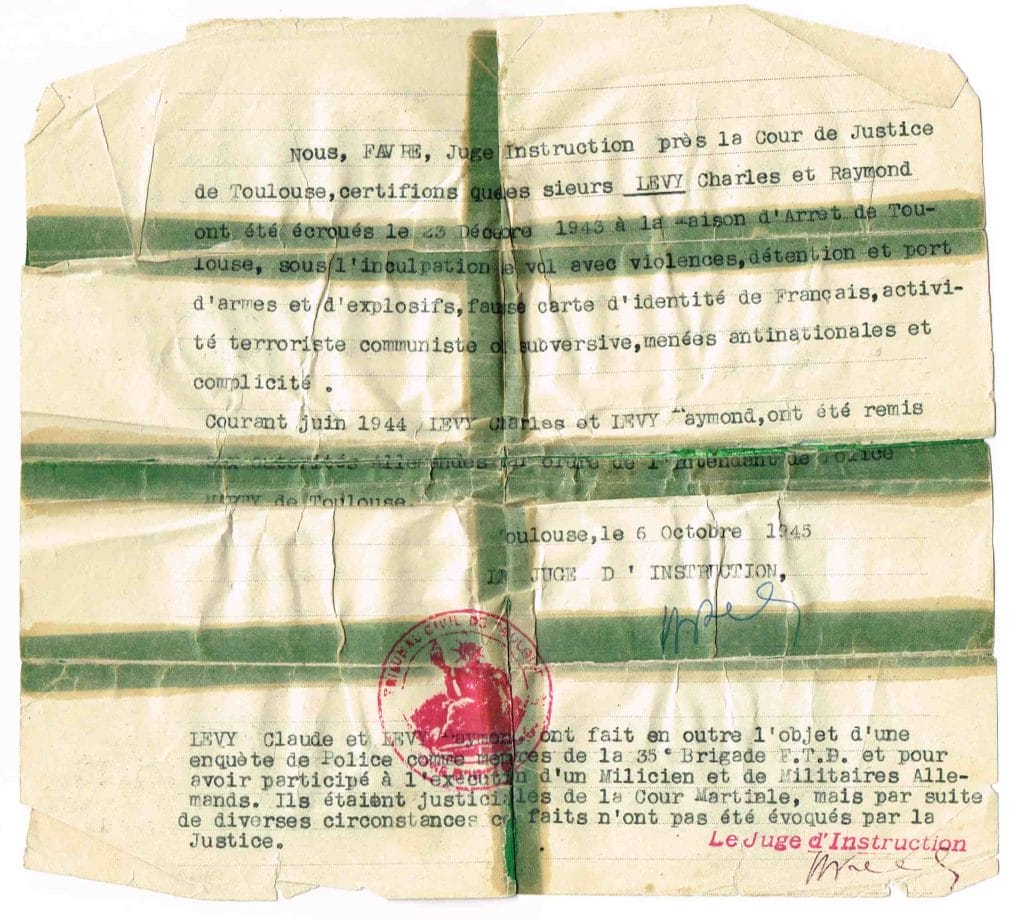 Nous, FAVRE, Juge Instruction près la Cour de Justice
de Toulouse, certifions que es sieurs LEVY Charles et Raymond
ont été écroués le 23 Décembre 1943 à la Maison d'Arret de Tou-
louse, sous l'inculpation e vol avec violences, détention et port
d'armes et d'explosifs, fausse carte d'identité de Français, activi-
té terroriste communiste o subversive, menées antinationales et
complicité .
Courant juin 1944 LEVY Charles et LEVY Raymond, ont été remis
aux autorités Allemandes par ordre de l'Intendant de Police
MARTY de Toulouse.
Toulouse, le 6 Octobre 1945
LE JUGE D ' INSTRUCTION,
TRIBUNAL CIVIL DE TOULOUSE
LEVY Claude et LEVY Raymond, ont fait en outre l'objet d'une
enquète de Police comme membres de la 35e Brigade F.T.P. et pour
avoir participé à l'exécution d'un Milicien et de Militaires Alle-
mands. Ils étaient justiciables de la Cour Martiale, mais par suite
de diverses circonstances ce faits n'ont pas été évoqués par la
Justice.
Le Juge d'Instruction